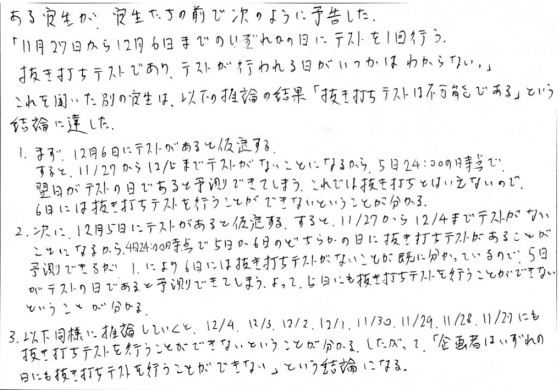 ある先生が、学生たちの前で次のように予告した。
「11月27日から12月6日までのいずれかの日にテストを1回行う。
抜き打ちテストであり、テストが行われる日がいつかはわからない。」
これを聞いた別の先生は、以下の推論の結果「抜き打ちテストは不可能である」という
結論に達した。
1. まず、12月6日にテストがあると仮定する。
すると、11/27から12/5までテストがないことになるから、5日24:00の時点で、
翌日がテストの日であると予測できてしまう。これでは抜き打ちとはいえないので、
6日には抜き打ちテストを行うことができないということが分かる。
2. 次に、12月5日にテストがあると仮定する。すると、11/27から12/4までテストがない
ことになるから、4日24:00時点で5日か6日のどちらかの日に抜き打ちテストがあることが
予測できるが、1.により6日には抜き打ちテストがないことが既に分かっているので、5日
がテストの日であると予測できてしまう。よって、5日にも抜き打ちテストを行うことができない
ということが分かる。
3. 以下同様に推論していくと、12/4、12/3、12/2、12/1、11/30、11/29、11/28、11/27にも
抜き打ちテストを行うことができないということが分かる。したがって、「企画者はいずれの
日にも抜き打ちテストを行うことができない」という結論になる。